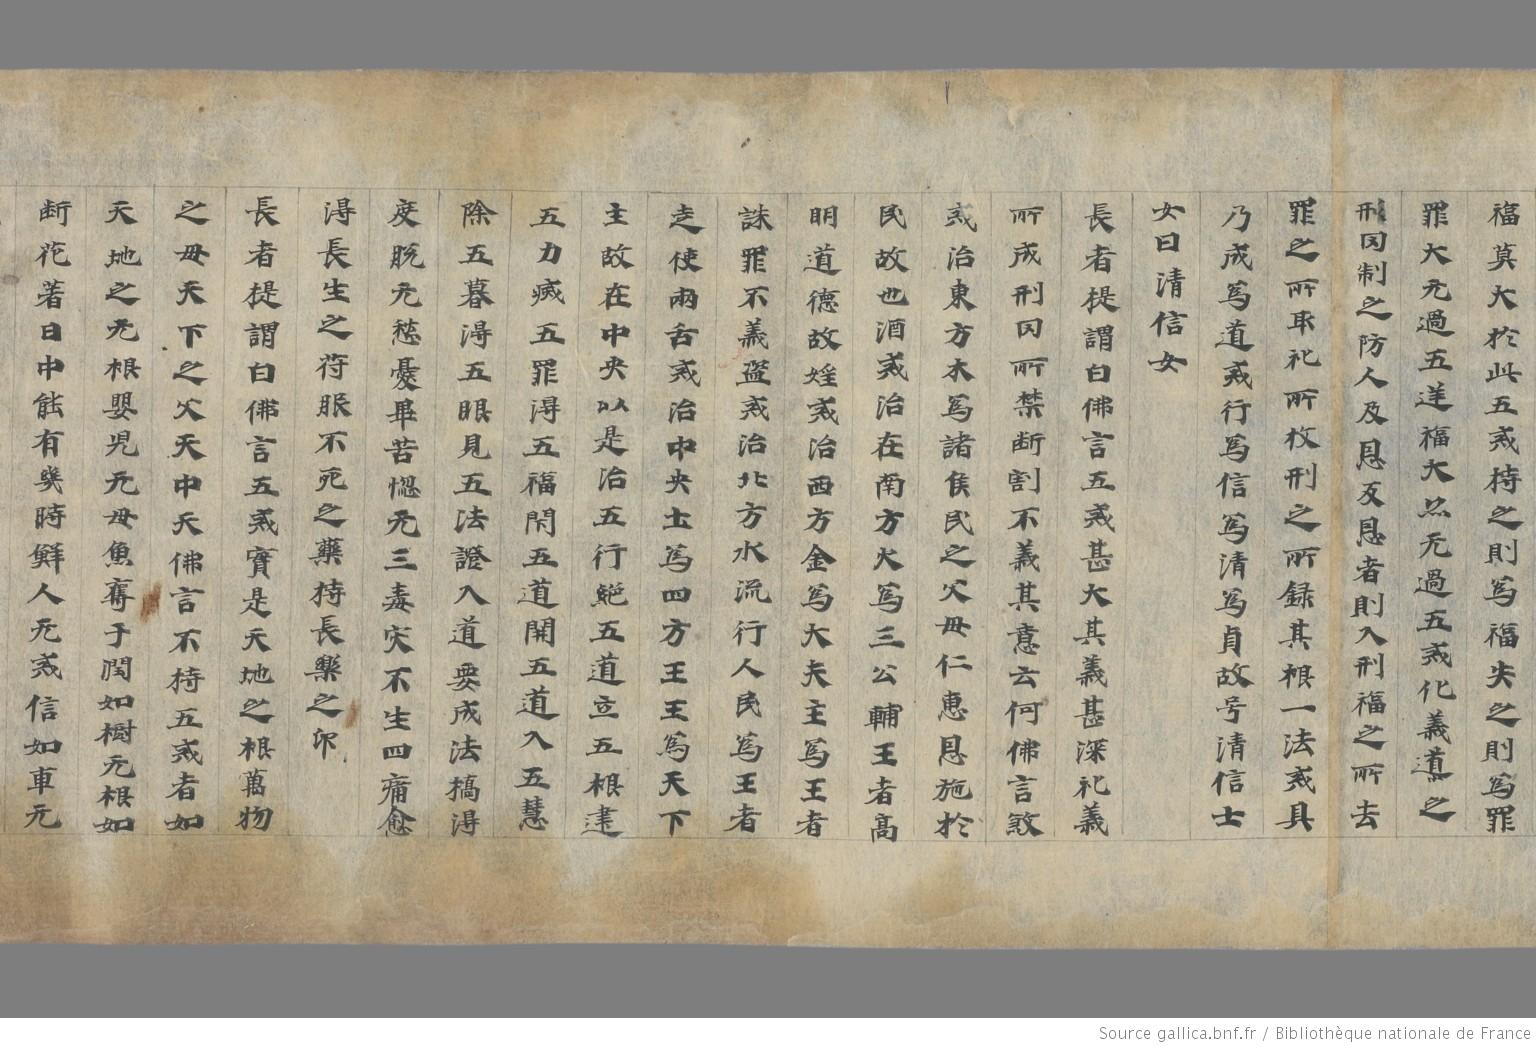 福莫大於此五戒持之則為福失之則為罪
罪大无過五逆福大忩无過五戒化義道之
刑罔制之防人及恩反恩者則入刑福之所去
罪之所取礼所杖刑之所録其根一法戒具
乃成為道戒行為信為清為貞故号清信士
女曰清信女
長者提謂白佛言五戒甚大其義甚深礼義
所成刑罔所禁断割不義其意云何佛言煞
戒治東方木為諸侯民之父母仁恵恩施於
民故也酒戒治在南方火為三公輔王者高
明道徳故婬戒治西方金為大夫主為王者
誅罪不義盗戒治北方水流行人民為王者
走使兩舌戒治中央土為四方王王為天下
主故在中央以是治五行絶五道立五根建
五力滅五罪淂五福閇五道開五道入五慧
除五暮淂五眼見五法證入道要成法搞淂
度脱无愁憂畢苦惱无三毒灾不生四痛愈
淂長生之苻服不死之藥持長樂之印
長者提謂白佛言五戒實是天地之根萬物
之母天下之父天中天佛言不持五戒者如
天地之无根嬰児无母魚奪于閏如樹无根如
断花著日中能有幾時鮮人无戒信如車无
Source gallica.bnf.fr / Bibliothèque nationale de France